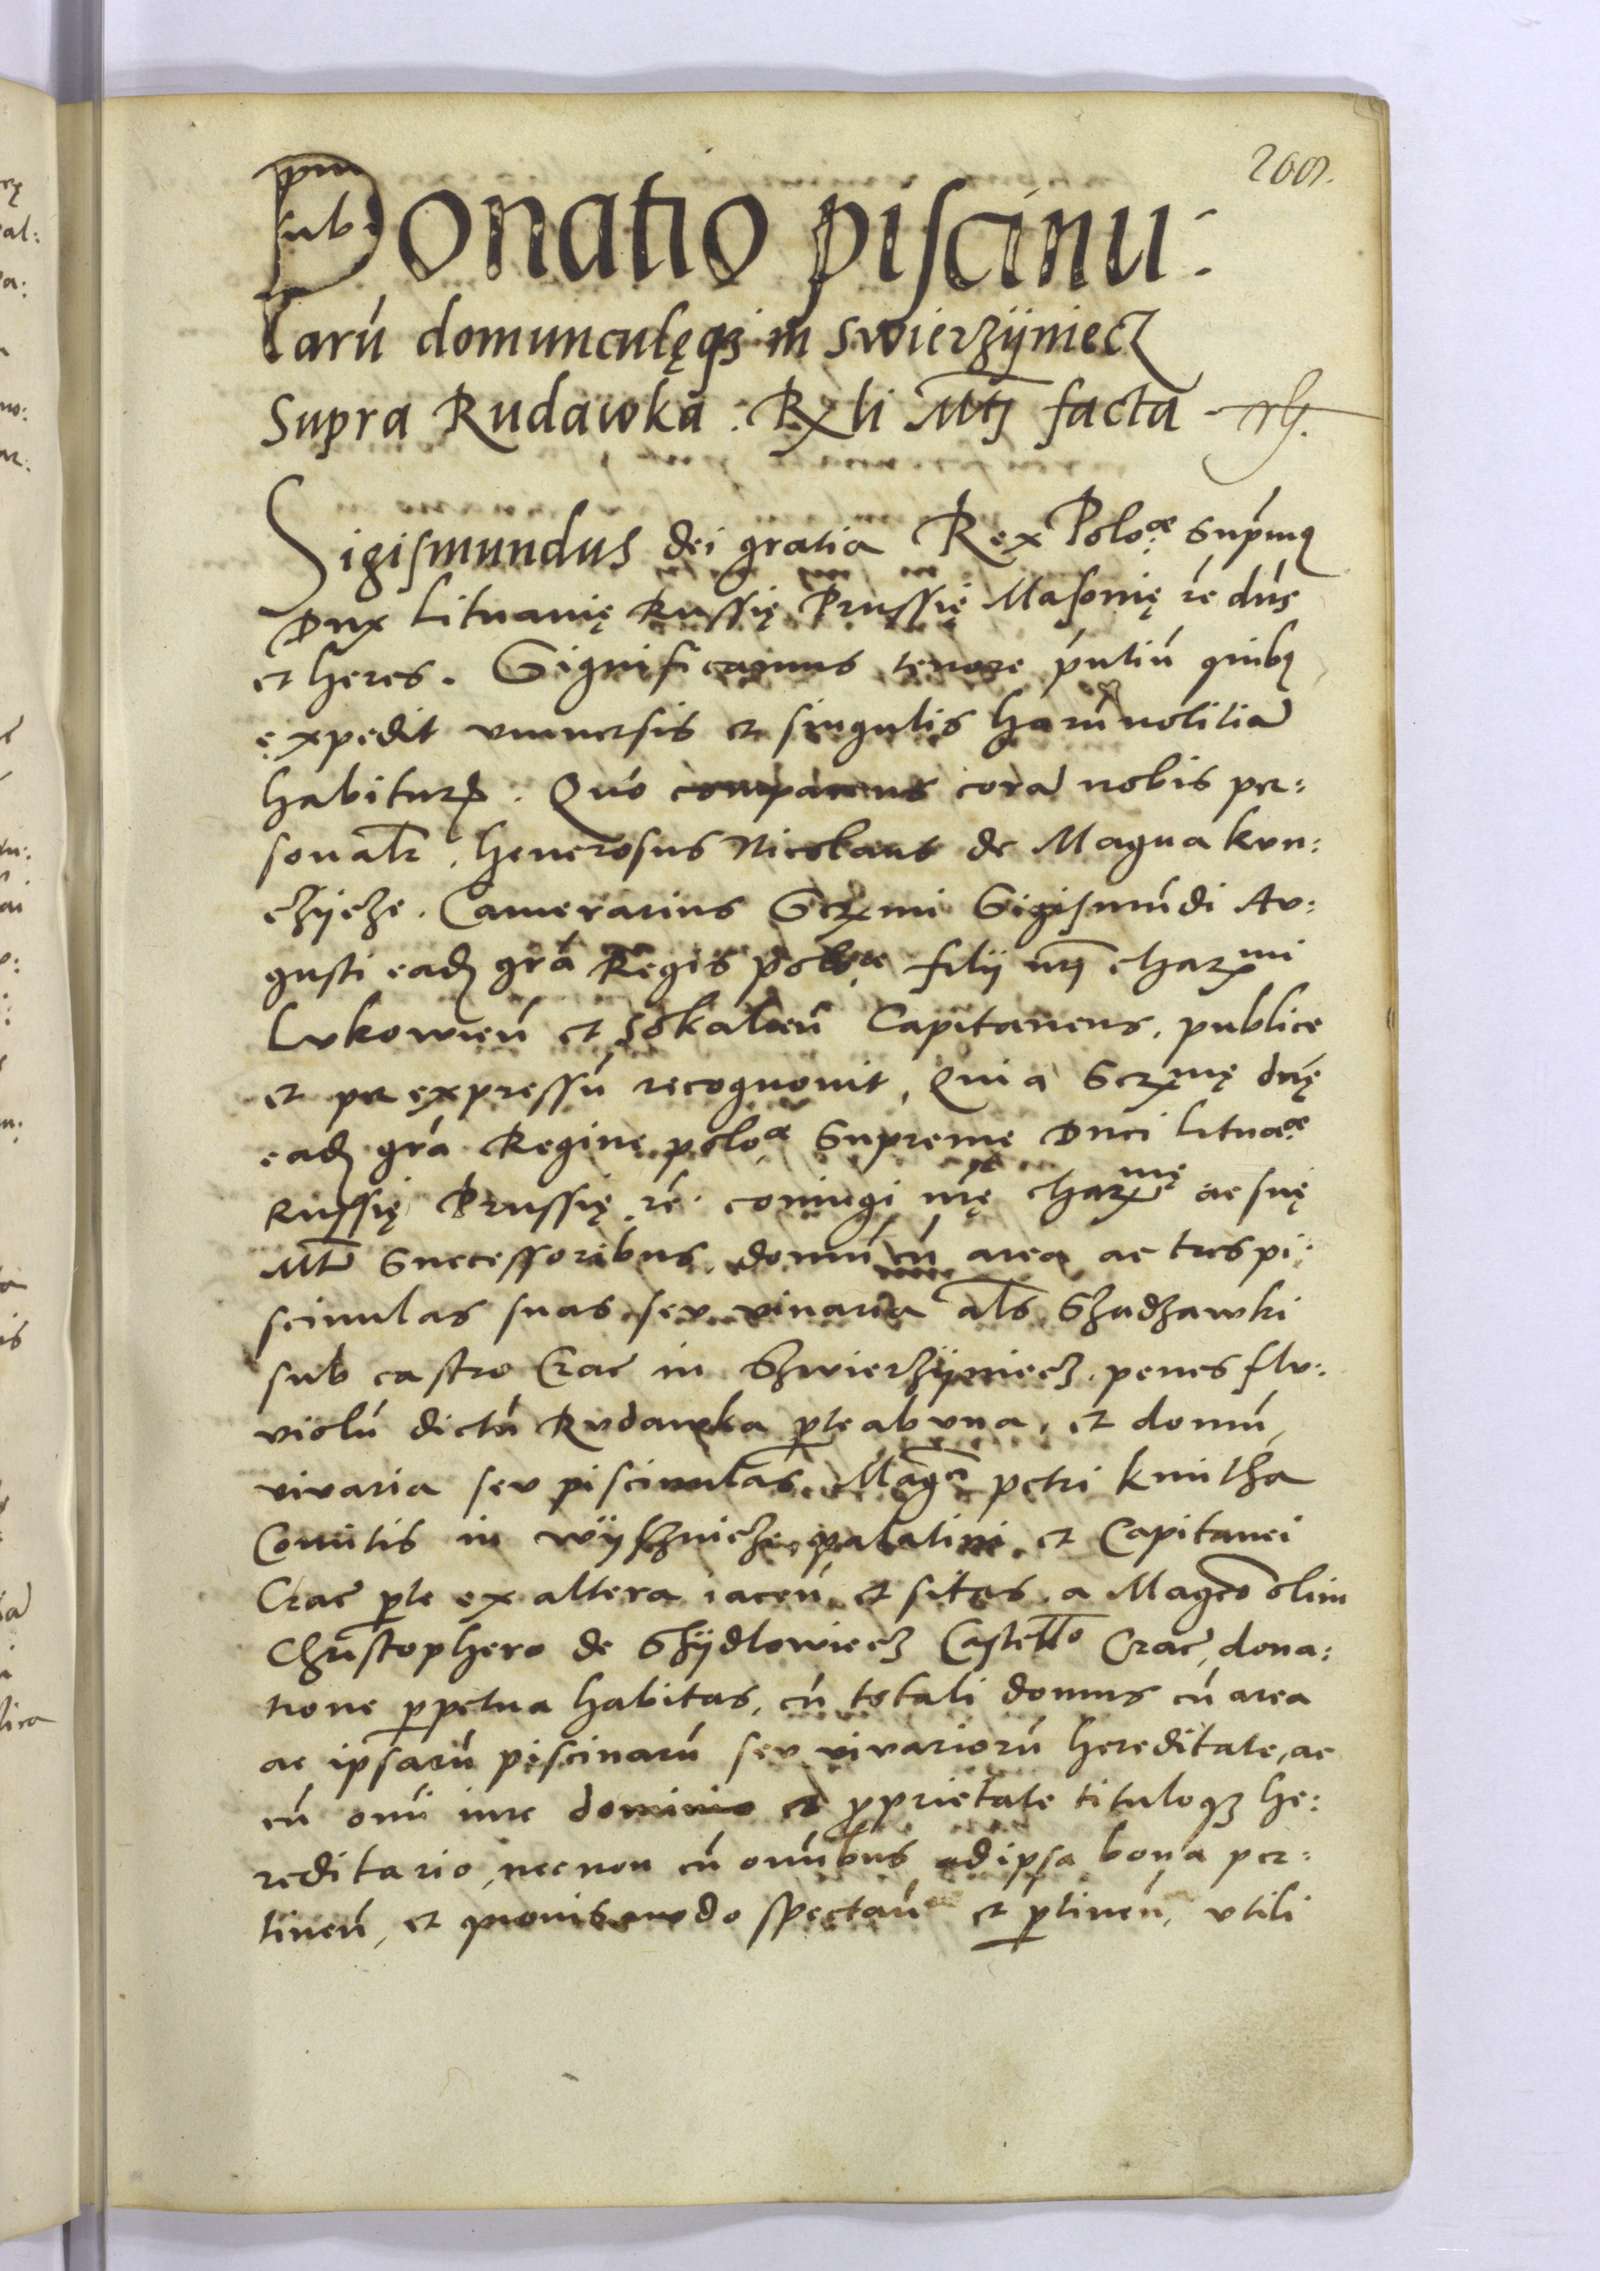 Donatio piscinu:
larū domunculęq3 in Swierzÿniecz
Supra Rudawka. Rx li Mtj facta
Sigismundus dei gratia Rex Poloæ Supmus
Dux Lituanię Russię Prussię Masovię rć dńs
et heres. Significamus tenore pntiū quibus
expedit universis et singulis harū notitiā
habitur. Quō comparens corā nobis per:
sonalr. Generosus Nicolaus de Magna kun:
czÿcze. Camerarius Serxmi Sigismūndi Au:
gusti eadj grā Regis poloæ filij nrj charxmi
Lukowieñ et Sokalieñ Capitaneus. publice
et per expressū recognovit, Quia Serxmę dnę
eadj grā Reginę poloæ Supremę Duci Lituaæ
Russię Prussię rć. coniugi nrę charxmę ac suę
Mti Successoribus. domū cū area ac tres pi:
scinulas suas seu vinaria als Szadzawki
sub castro Crac in Szwierzÿniecz. penes flu:
violū dictū Rudawka pte ab una, et domū
vivaria seu piscinulas Magci petri kmitha
Comitis in Wÿsznicze palatini et Capitanei
Crac pte ex altera iaceñ et sitas. a Magco olim
Christophero de Szÿdlowiecz Castello Crac, dona:
tione ppetua habitas, cū totali domus cū area
ac ipsarū piscinarū seu vivariorū hereditate, ac
cū omi iure dominio et pprietate tituloq3 he:
reditario, necnon cū omibus ad ipsa bona per:
tineñ, et quovis modo spectañ et ptineñ, utili